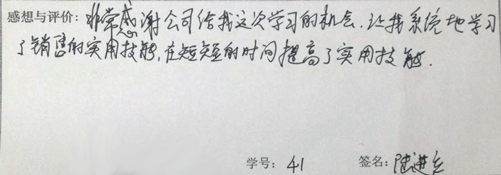 感想与评价：非常感谢公司给我这次学习的机会，让我系统地学习
了销售的实用技能，在短短的时间提高了实用技能．
学号：41 签名：陆进